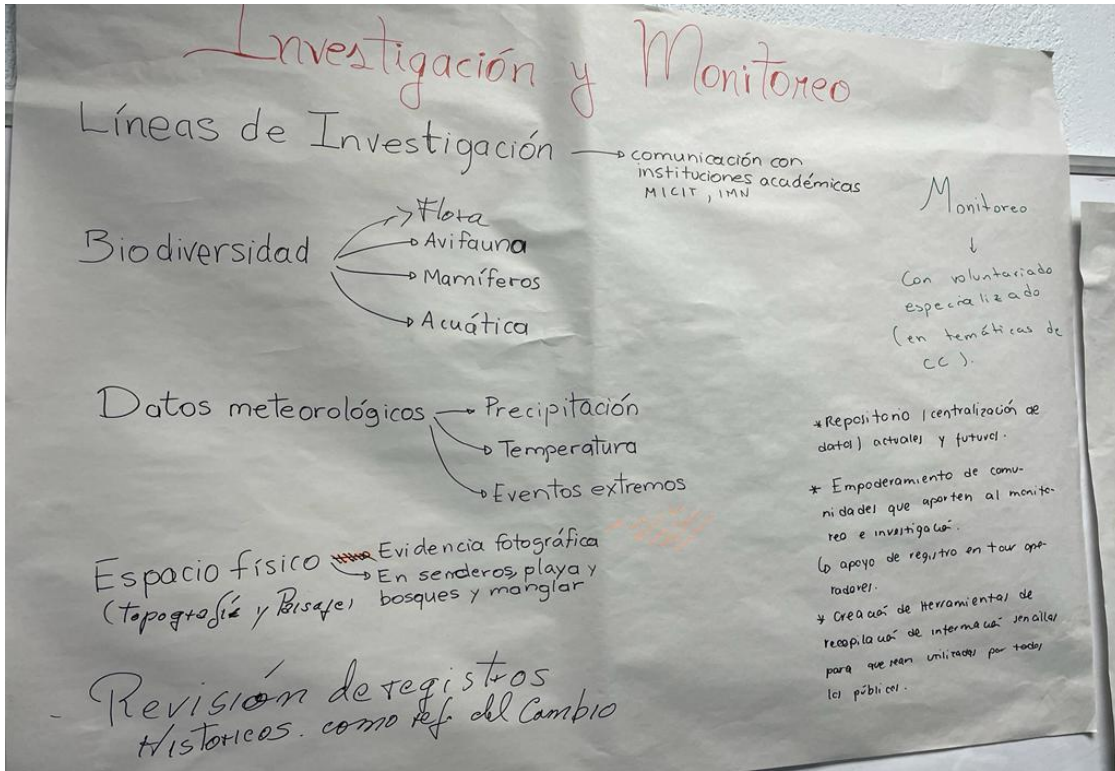 Investigación y Monitoreo
Líneas de Investigación → comunicación con
instituciones académicas
MICIT, IMN
Biodiversidad
→ Flora
→ Avifauna
→ Mamíferos
→ Acuática
Datos meteorológicos → Precipitación
→ Temperatura
→ Eventos extremos
Espacio físico Evidencia fotográfica
(Topografía y Paisaje) → En senderos, playa y
bosques y manglar
- Revisión de registros
Históricos. como ref del Cambio
Monitoreo
↓
Con voluntariado
especializado
(en temáticas de
CC).
* Repositorio (centralización de
datos) actuales y futuros.
* Empoderamiento de comu-
nidades que aporten al monito-
reo e investigación.
↳ apoyo de registro en tour ope-
radores.
* Creación de Herramientas de
recopilación de información sencillas
para que sean utilizadas por todos
los públicos.